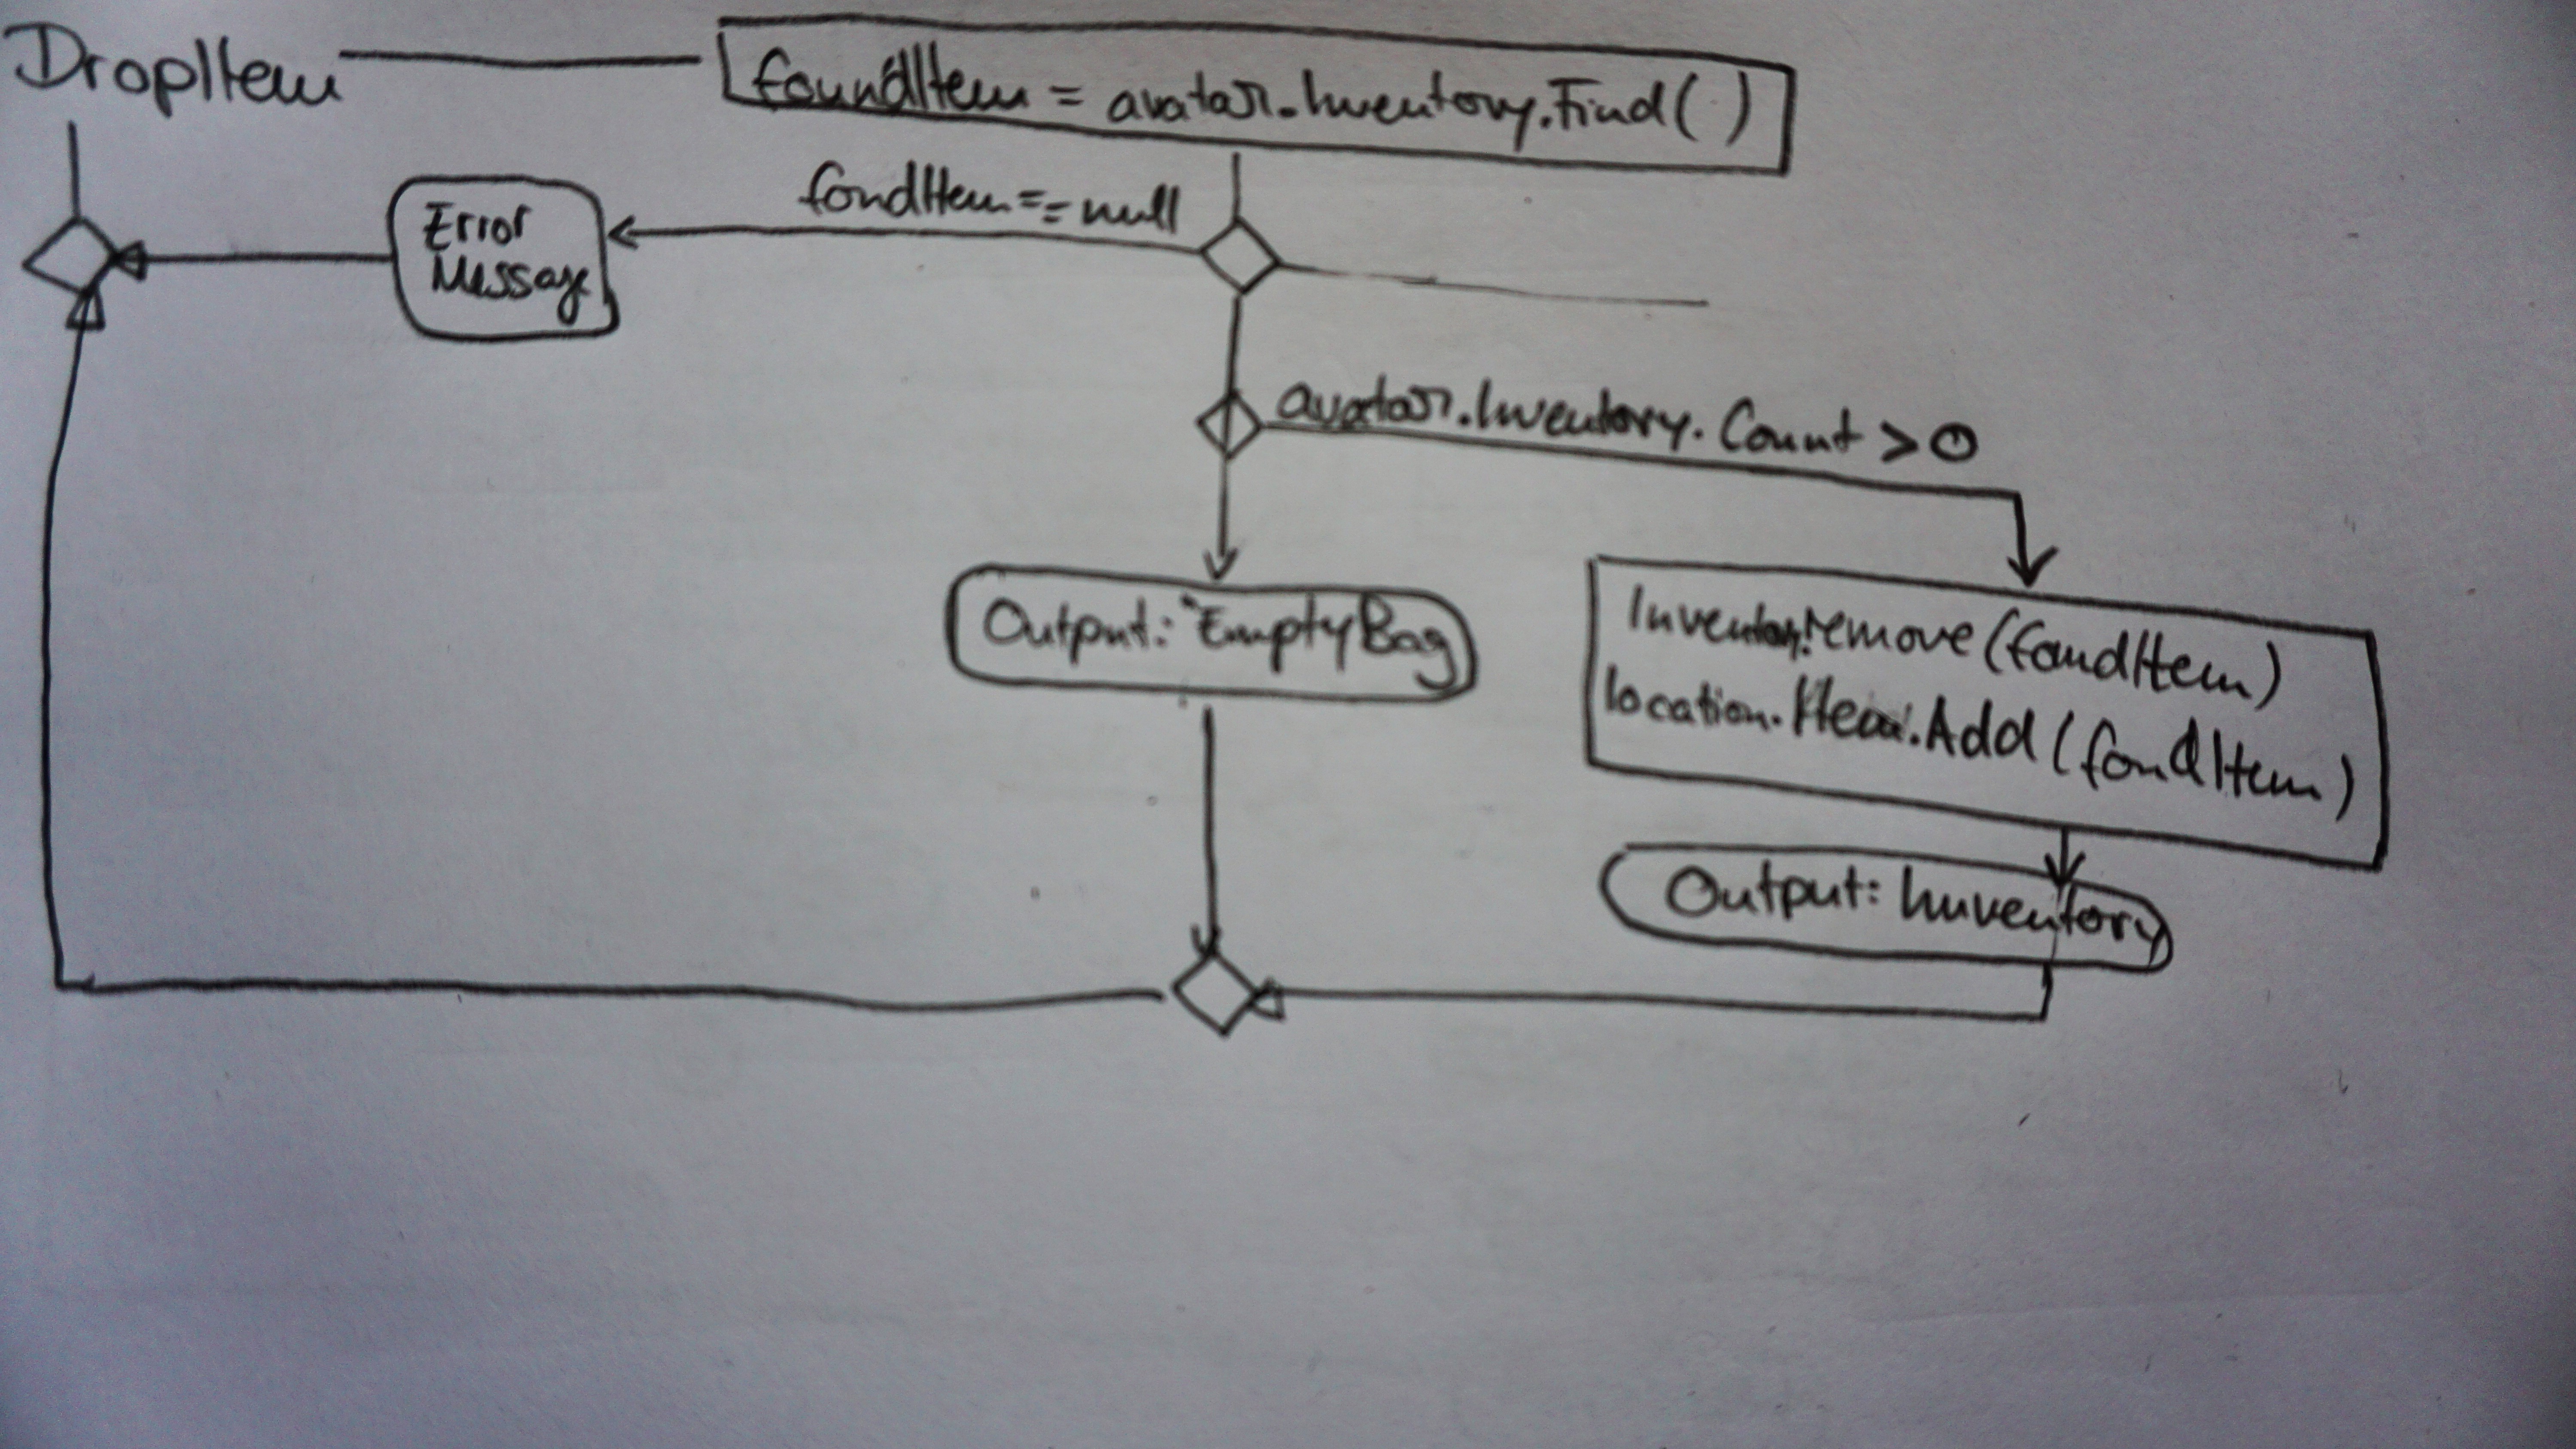 DropItem
foundItem = avatar.Inventory.Find( )
fondItem == null
Error
Message
avatar.Inventory.Count > 0
Output: "EmptyBag
Inventory.remove(foundItem)
location.Item.Add(fondItem)
Output: Inventory